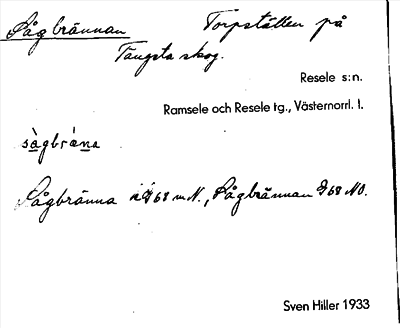 Sågbrännan Torpställen på
Tängsta skog.
Resele s:n.
Ramsele och Resele tg., Västernorrl. l.
sàgbrа̀na
Sågbränna 68 m N., Sågbrännan 68 NO.
Sven Hiller 1933